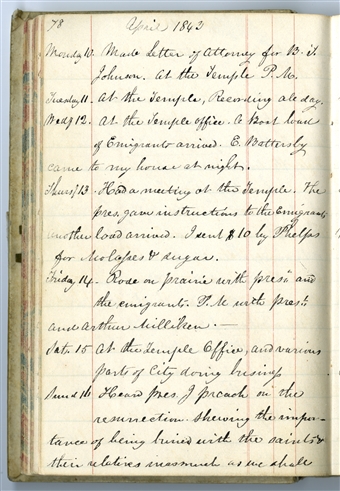 78 April 1843
Monday 10. Made Letter of Attorney for B. F.
Johnson. At the Temple P.M.
Tuesday 11. At the Temple, Recording all day.
Wedy 12. At the Temple office. A Boat load
of Emigrants arrived. E. Battersby
came to my house at night.
Thurs/13. Had a meeting at the Temple. The
pres. gave instructions to the Emigrants
another load arrived. I sent $10 by Phelps
for Molasses & sugar.
Friday 14. Rode on prairie with prest. and
the emigrants. P.M with prest.
and Arthur Milliken. —
Sat. 15 At the Temple Office, and various
parts of City doing business
Sund 16 Heard Pres. J preach on the
resurrection shewing the impor-
tance of being buried with the saints &
their relatives inasmuch as we shall